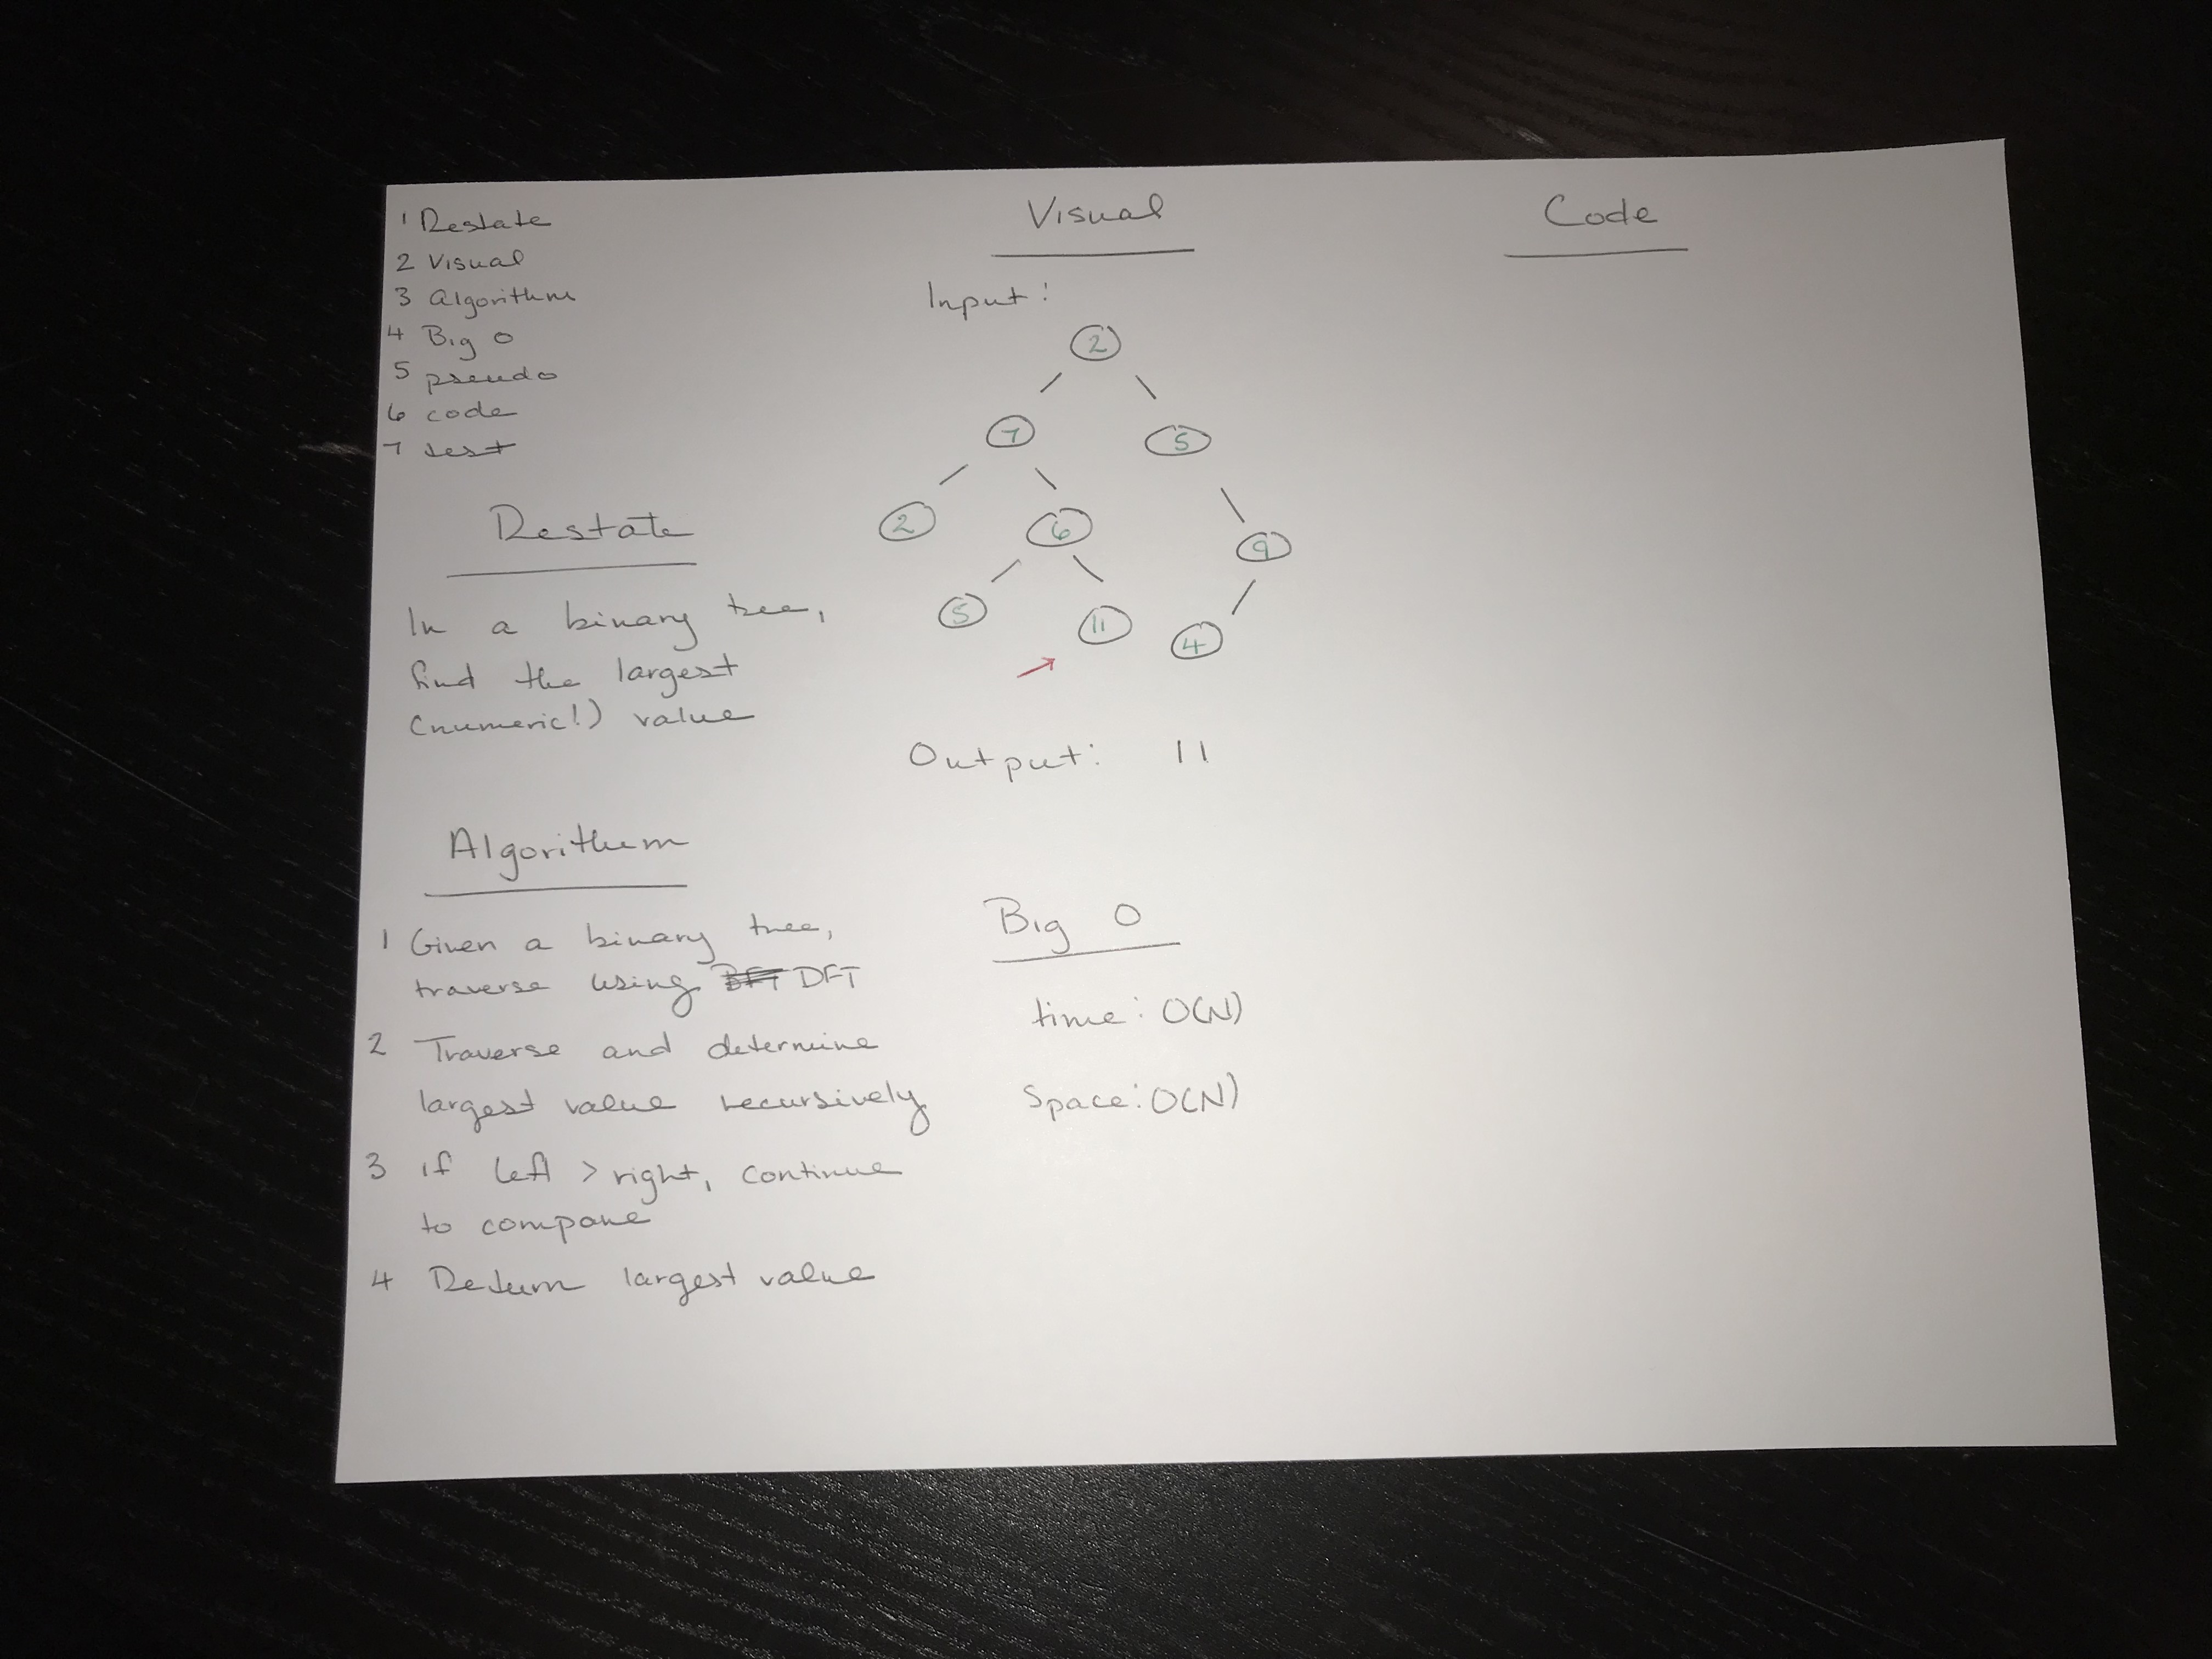 1 Restate
2 Visual
3 algorithm
4 Big O
5 pseudo
6 code
7 test
Restate
In a binary tree,
find the largest
(numeric!) value
Algorithm
1 Given a binary tree,
traverse using DFT
2 Traverse and determine
largest value recursively
3 if left > right, continue
to compare
4 Return largest value
Visual
Input:
2
7 5
2 6 9
5 11 4
Output: 11
Big O
time: O(N)
Space: O(N)
Code